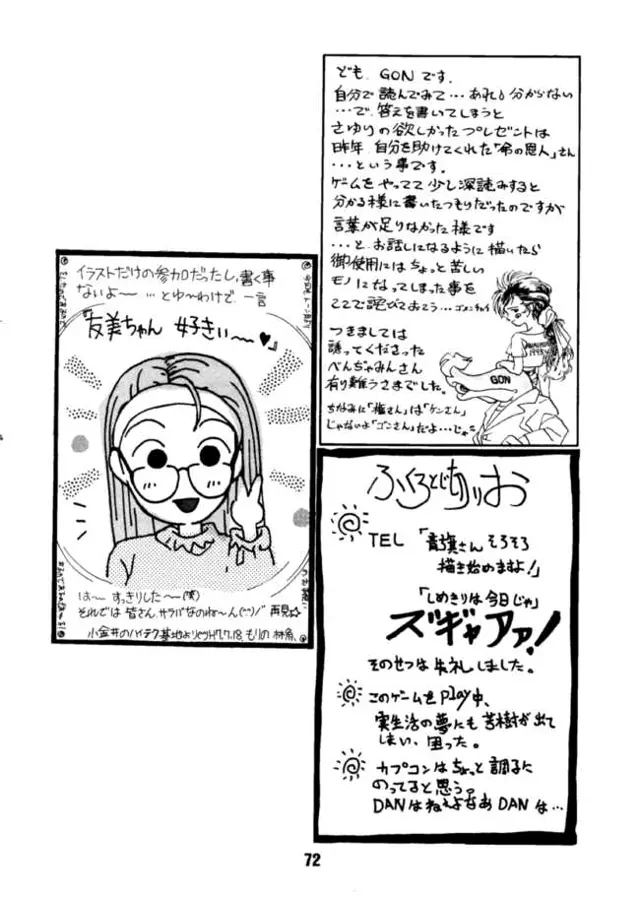 ども、GONです。
自分で読んでみて…あれ?分からない
…で、答えを書いてしまうと
さゆりの欲しかったプレゼントは
昨年、自分を助けてくれた「命の恩人」さん
…という事です。
ゲームをやってて少し深読みすると
分かる様に書いたつもりだったのですが
言葉が足りなかった様です
…と、お話しになるように描いたら
御使用にはちょっと苦しい
モノになってしまった事を
ここで詫びておこう…ゴメンチャイ
つきましては
誘ってくださった
べんぢゃみんさん
有り難うさまでした。
ちなみに「権さん」は「ケンさん」
じゃないよ「ゴンさん」だよ…じゃ
GON
イラストだけの参加だったし、書く事
ないよ〜 …とゆ〜わけで 一言
『友美ちゃん 好きぃ〜♥』
は〜 すっきりした〜(笑)
それでは皆さん、サラバなのね〜ん(^^)/ 再見☆
小金井のハイテク基地より H7.7.18. もりの
ふくろとじありお
TEL 「青旗さんそろそろ
描き始めますよ!」
「しめきりは今日じゃ」
ズギャアァ!
そのせつは失礼しました。
このゲームをplay中、
実生活の夢にも 苦樹が出て
しまい、困った。
カプコンはちょっと調子に
のってると思うっ
DANはねぇよなあ DANは…
72